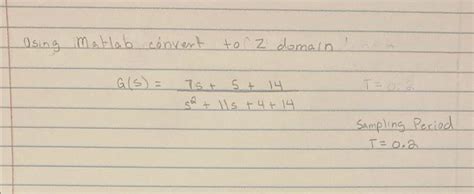 Using Matlab convert to Z domain
G(s) = 7s + 5 + 14
s² + 11s + 4 + 14
T = 0.2
Sampling Period
T = 0.2